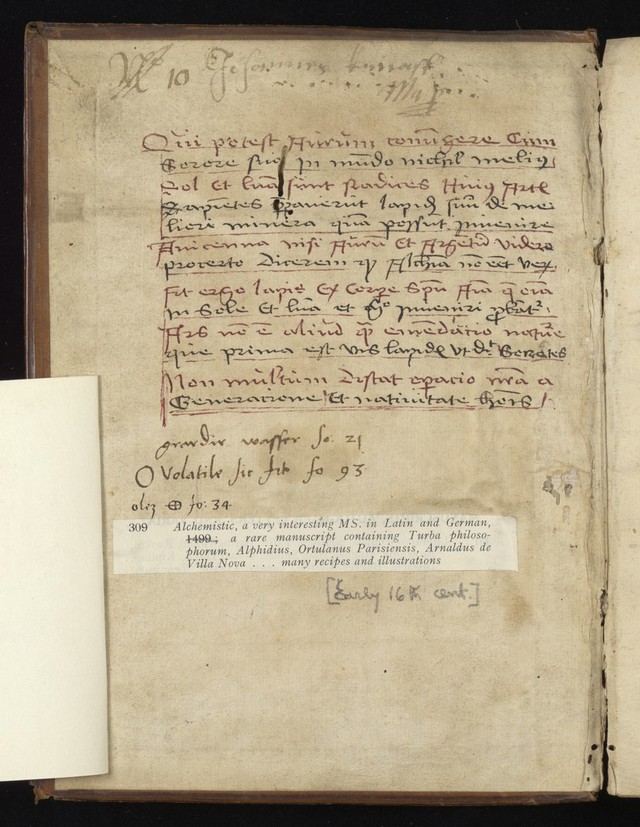 No 10 Johannes
Qui potest Aurum coniu(n)gere Cum
Sorore sua in mu(n)do nichil melius
Sol Et lu(n)a sunt Radices huius Artis
lapid(em) suu(m) de me
liori minera qua(m) possunt invenire
Avicenna nisi Auru(m) Et Arge(n)tu(m) videre(m)
procerto Dicerem q(uod) Alchi(m)ia no(n) e(ss)et vera
fit ergo lapis Ex Corpe Spu A(n)i(m)a
in Sole Et lu(n)a et inveniri
Ars no(n) e(st) aliud
que prima est lapid ut Socrates
Non multum Distat op(er)acio n(ost)ra a
Generacione Et nativitate ho(min)is
wasser fo: 21
Volatile sic fit fo 93
fo: 34
309 Alchemistic, a very interesting MS. in Latin and German,
1499; a rare manuscript containing Turba philoso-
phorum, Alphidius, Ortulanus Parisiensis, Arnaldus de
Villa Nova . . . many recipes and illustrations
[Early 16th cent.]